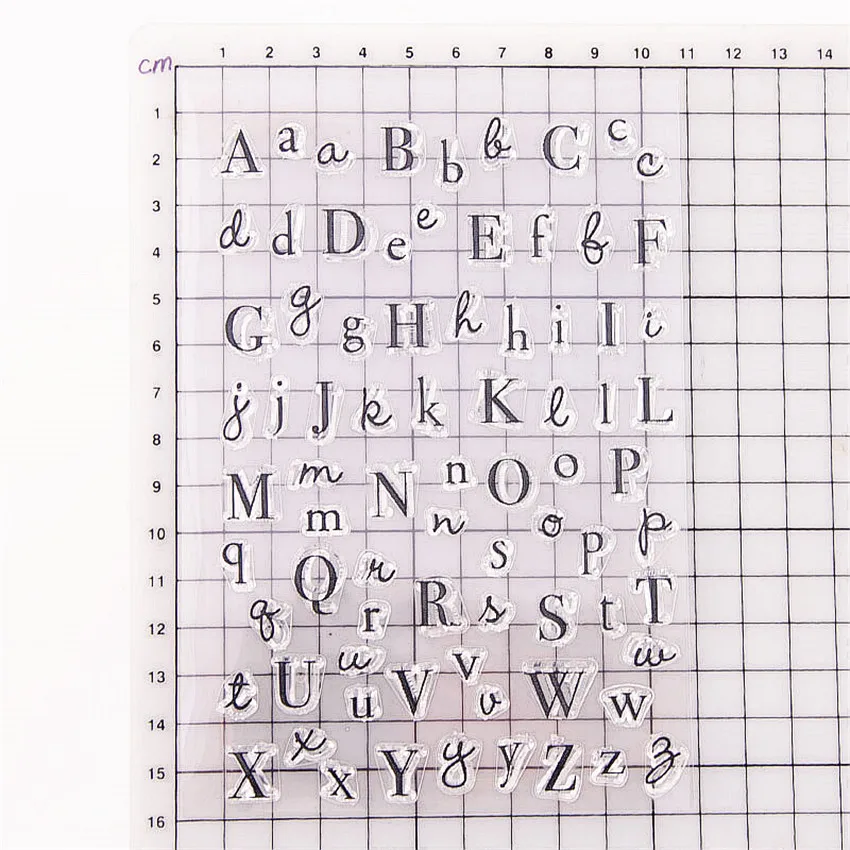 1 2 3 4 5 6 7 8 9 10 11 12 13 14
cm
1
A a a B b b C c c
2
3
d d D e e E f f F
4
5
G g g H h h i I i
6
7
j j J k k K l l L
8
9
M m m N n n O o o P
10
q Q r s p p
11
q r R s S t T
12
13
t U u u V v v W w w
14
15
X x x Y y y Z z z
16